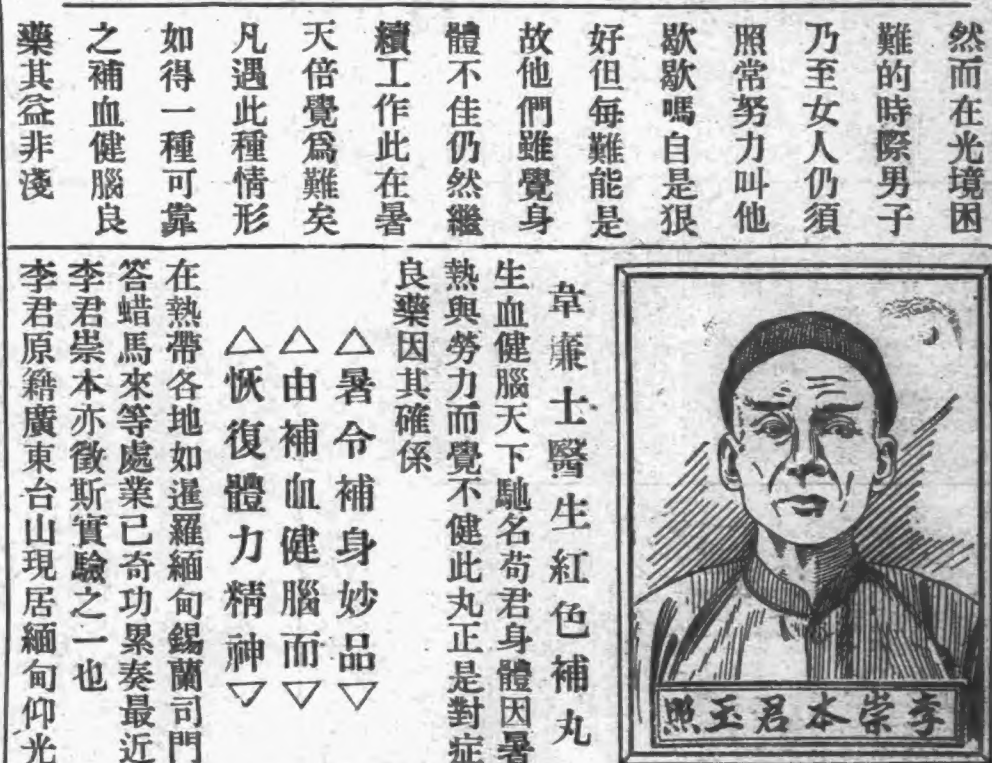 然而在光境困
難的時際男子
乃至女人仍須
照常努力叫他
歇歇嗎自是狠
好但每難能是
故他們雖覺身
體不佳仍然繼
續工作此在暑
天倍覺爲難矣
凡遇此種情形
如得一種可靠
之補血健腦良
藥其益非淺
李崇本君玉照
韋廉士醫生紅色補丸
生血健腦天下馳名苟君身體因暑
熱與勞力而覺不健此丸正是對症
良藥因其確係
△暑令補身妙品▽
△由補血健腦而▽
△恢復體力精神▽
在熱帶各地如暹羅緬甸錫蘭司門
答蜡馬來等處業已奇功累奏最近
李君崇本亦徵斯實驗之一也
李君原籍廣東台山現居緬甸仰光